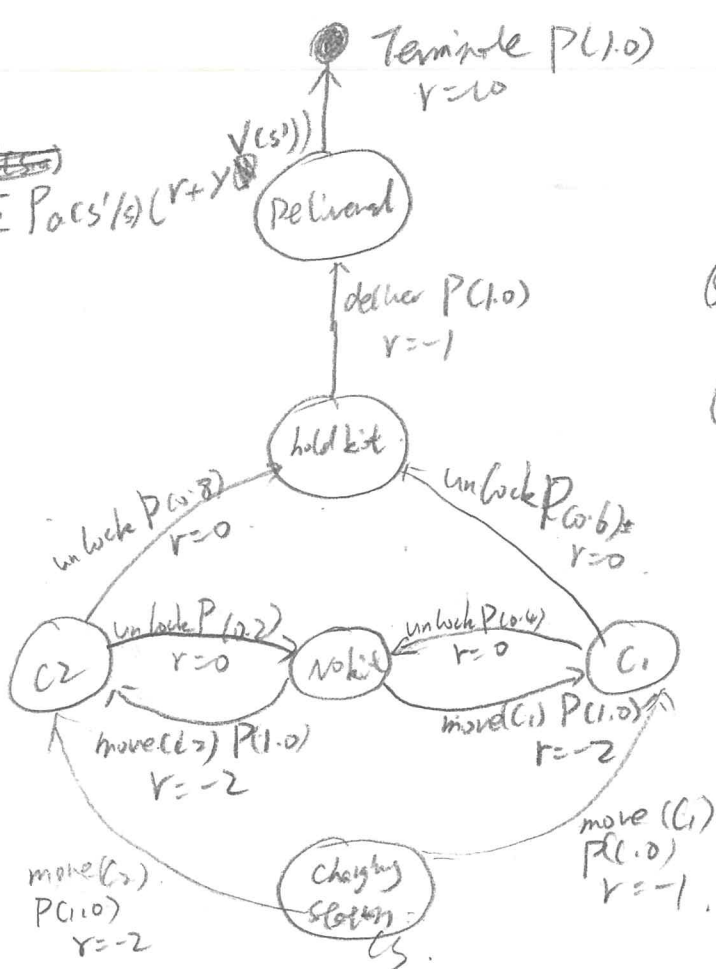 Terminate P(1.0)
r=10
V(s'))
Σ Pa(s'/s)(r+γ
Delivered
deliver P(1.0)
r=-1
hold kit
unlock P(0.8)
r=0
unlock P(0.6)
r=0
C2
unlock P(0.2)
r=0
No kit
unlock P(0.4)
r=0
C1
move(C2) P(1.0)
r=-2
move(C1) P(1.0)
r=-2
move(C2)
P(1.0)
r=-2
Charging
Station
CS.
move (C1)
P(1.0)
r=-1.